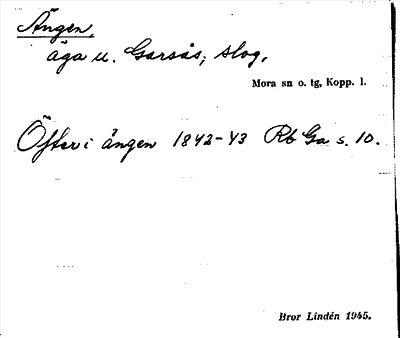 Ängen,
äga u. Garsås; slog.
Mora sn o. tg, Kopp. l.
Öfter i ängen 1842-43 Rb Ga s. 10.
Bror Lindén 1945.